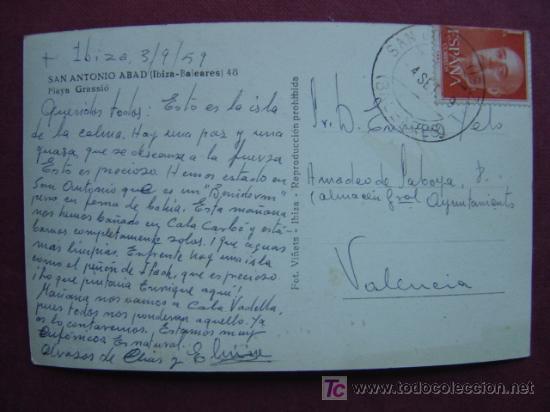 + Ibiza, 3/9/59
SAN ANTONIO ABAD (Ibiza-Baleares) 48
Playa Grassió
Queridos todos: Esto es la isla
de la calma. Hay una paz y una
que se descansa a la fuerza
Esto es precioso. Hemos estado en
San Antonio que es un "Benidorm"
pero en forma de bahia. Esta mañana
nos hemos bañado en Cala Carbó y está-
bamos completamente solos. ¡Que aguas
mas limpias. Enfrente hay una isla
como el peñón de Ifach, que es precioso
¡lo que pintaria Enrique aqui!
Mañana nos vamos a Cala Vadella,
pues todos nos ponderan aquello. Ya
os lo contaremos. Estamos muy
eufóricos Es natural.
Abrazos de Elias y
Fot. Viñets - Ibiza - Reproducción prohibida
ESPAÑA
CORREOS
SAN
4 SEP
Sr. D. Enrique
Amadeo de Saboya,
(almacén Gral Ayuntamiento
Valencia
TC
www.todocoleccion.net